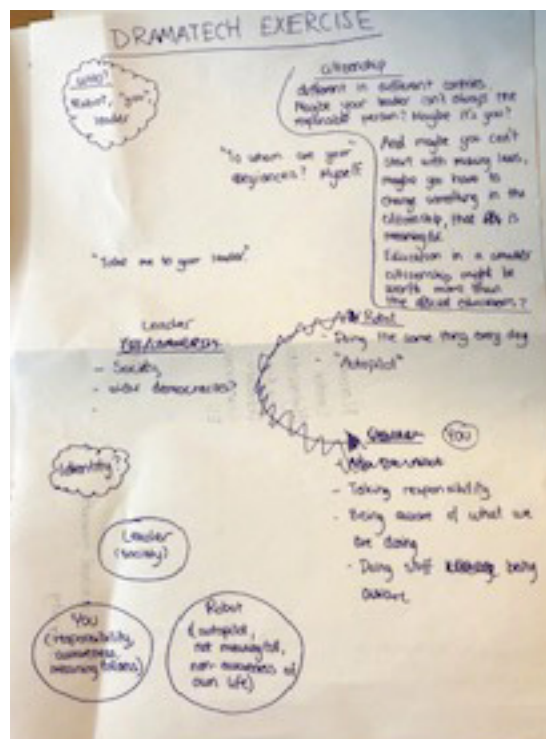 DRAMATECH EXERCISE
WHO?
Robot, "you",
leader
citizenship
different in different contries.
Maybe your leader isn't always the
person? Maybe it's you?
And maybe you can't
start with making laws,
maybe you have to
change something in the
citizenship, that is
meaningful.
Education in a smaller
citizenship might be
worth more than
the educations?
"To whom are your
allegiances? Myself
"Take me to your leader"
Leader
- Society
- democracies?
Robot
- Doing the same thing every day
- "Autopilot"
YOU
- Taking responsibility
- Being aware of what we
are doing
- Doing stuff being
aware
Identity?
Leader
(society)
You
(responsibility,
awareness,
Robot
(autopilot,
not meaningful,
non-awareness of
own life)